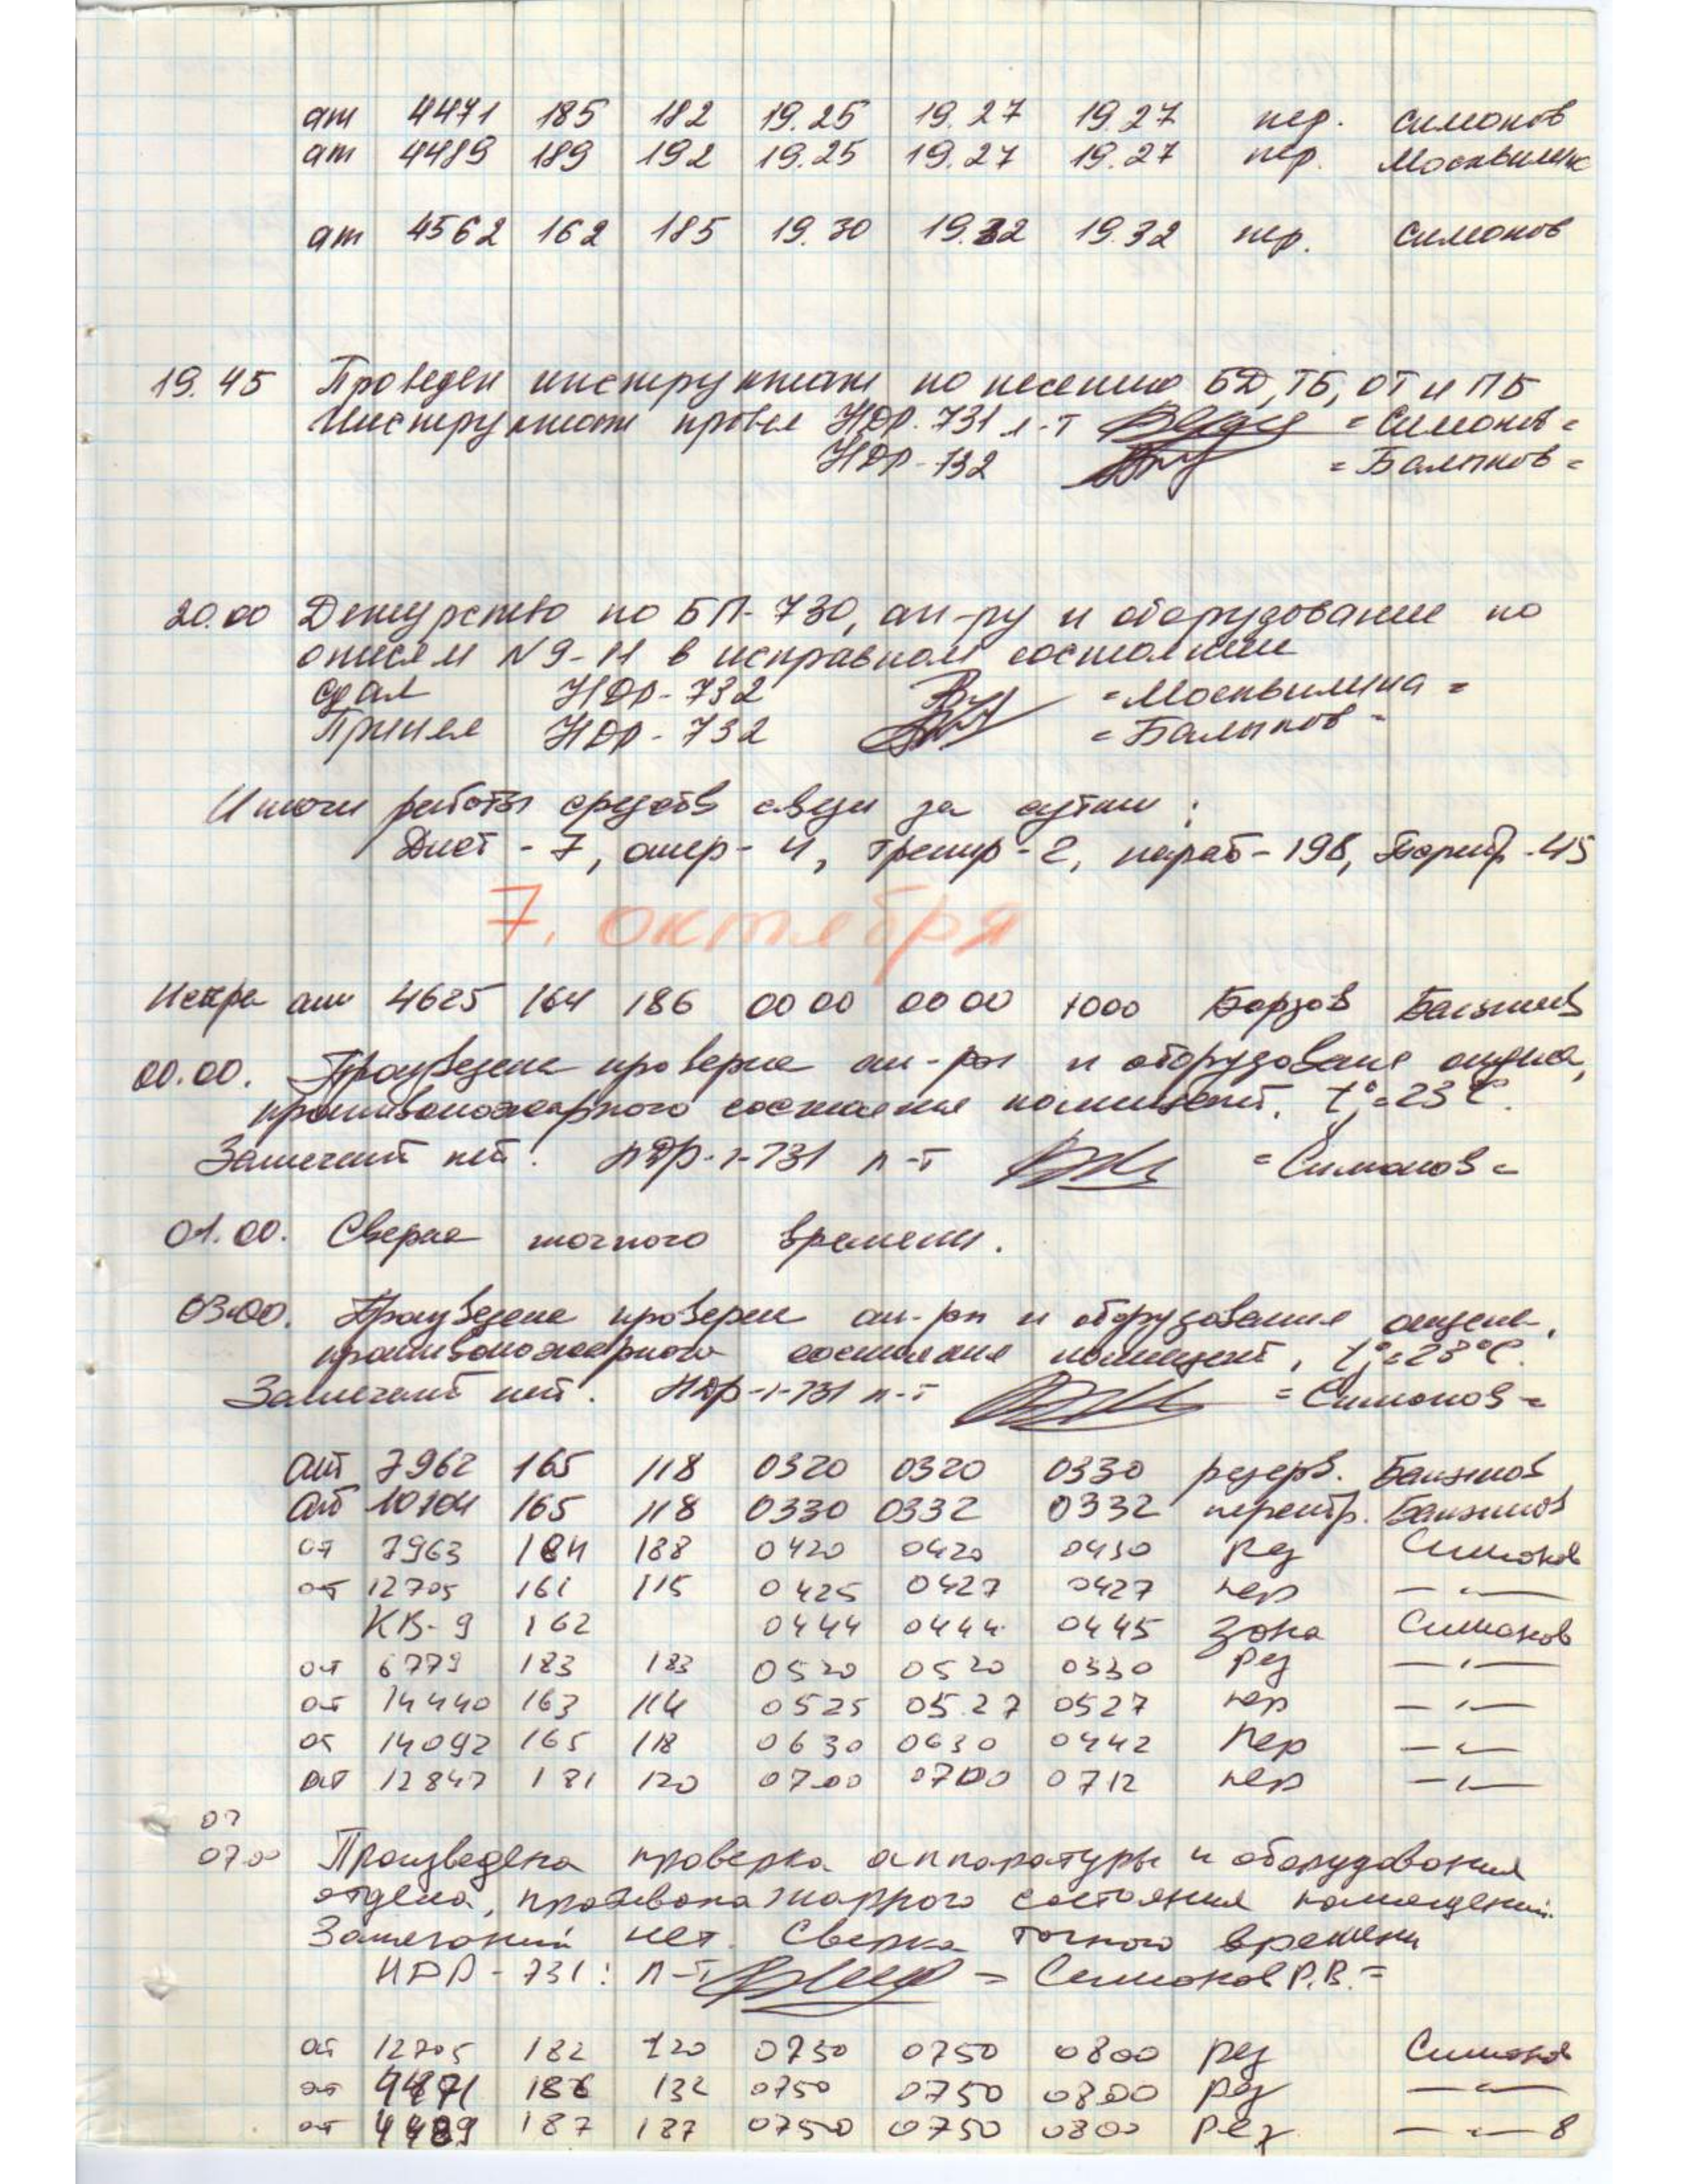 ат 4471 185 182 19.25 19.27 19.27 пер. Симонов
ат 4489 189 192 19.25 19.27 19.27 пер. Москвилина
ат 4562 162 185 19.30 19.32 19.32 пер. Симонов
19.45 Проведен инструктаж по несению БД, ТБ, ОТ и ПБ
Инструктаж провел НДР-731 л-т =Симонов=
НДР-732 =Балыков=
20.00 Дежурство по БП-730, ап-ру и оборудование по
описям N9-11 в исправном состоянии
Сдал НДР-732 =Москвилина=
Принял НДР-732 =Балыков=
Итоги работы средств связи за сутки:
Дист - 7, опер - 4, тренир - 2, караб - 198,
7. октября
Искра ат 4625 164 186 0000 0000 1000 Борзов Балыков
00.00. Произведена проверка ап-ры и оборудования отдела,
противопожарного состояния помещений. t°=23°C.
Замечаний нет. НДР-1-731 л-т =Симонов=
01.00. Сверка точного времени.
03.00. Произведена проверка ап-ры и оборудования отдела,
противопожарного состояния помещений, t°=23°C.
Замечаний нет. НДР-1-731 л-т =Симонов=
ат 7962 165 118 0320 0320 0330 резерв. Балыков
ат 10104 165 118 0330 0332 0332 перестр. Балыков
ат 7963 184 188 0420 0420 0430 рез Симонов
ат 12705 161 115 0425 0427 0427 пер —"—
КВ-9 162 0444 0444 0445 Зона Симонов
ат 6779 183 183 0520 0520 0330 рез —"—
ат 14440 163 114 0525 05.27 0527 пер —"—
ат 14092 165 118 0630 0630 0442 пер —"—
ат 12847 181 120 0700 0700 0712 пер —"—
07
0700 Произведена проверка аппаратуры и оборудования
отдела, противопожарного состояния помещений.
Замечаний нет. Сверка точного времени
НДР-731: л-т =Симонов Р.В.=
ат 12705 182 120 0750 0750 0800 рез Симонов
ат 4471 186 132 0750 0750 0800 рез —"—
ат 4489 187 187 0750 0750 0800 рез —"— 8